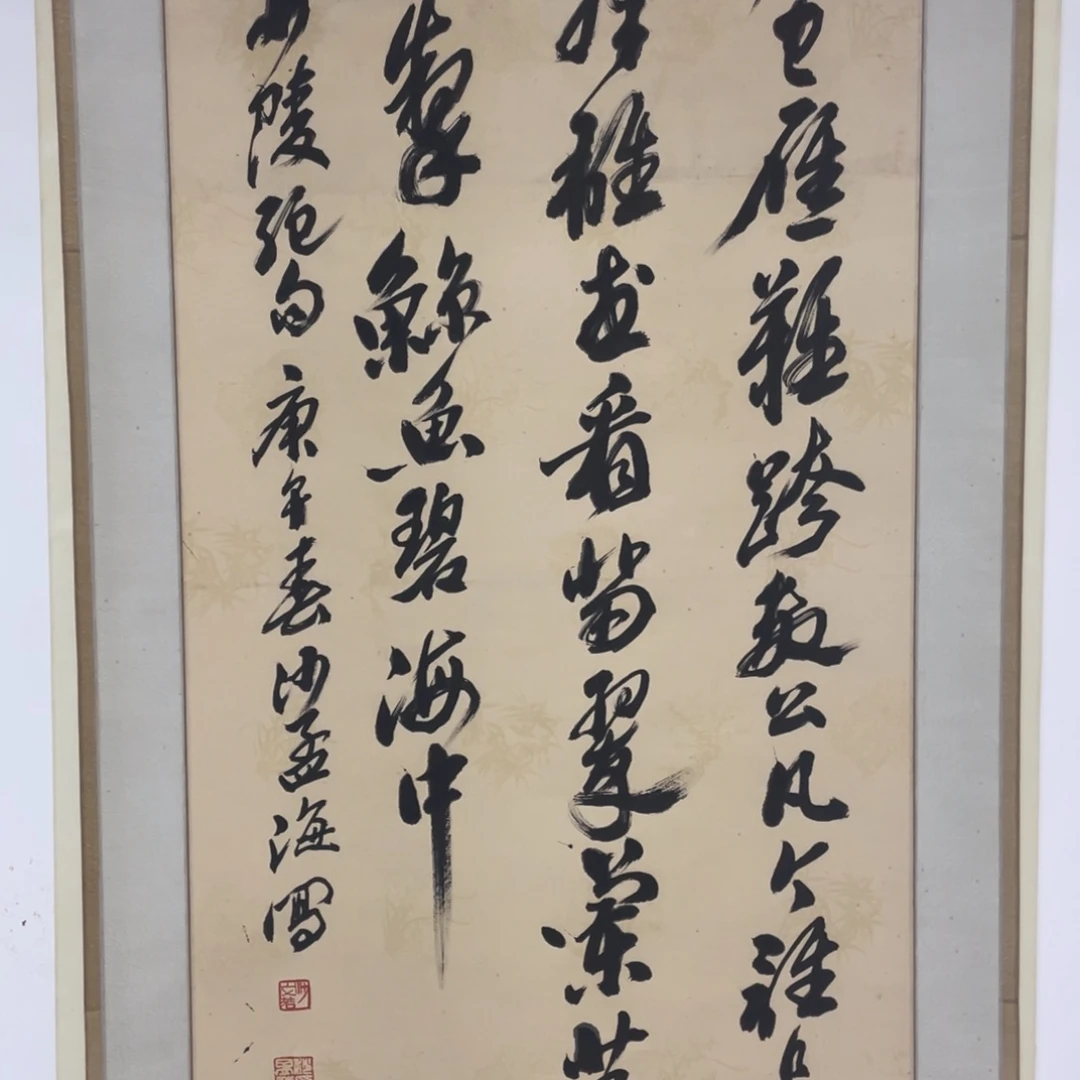 應難跨數公凡今誰
群雄或看翡翠蘭苕
掣鯨魚碧海中
少陵絕句庚午春沙孟海寫